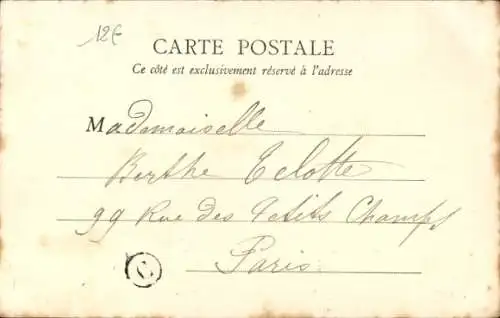 12€
CARTE POSTALE
Ce côté est exclusivement réservé à l'adresse
Mademoiselle
Berthe Telotte
99 Rue des Petits Champs
Paris